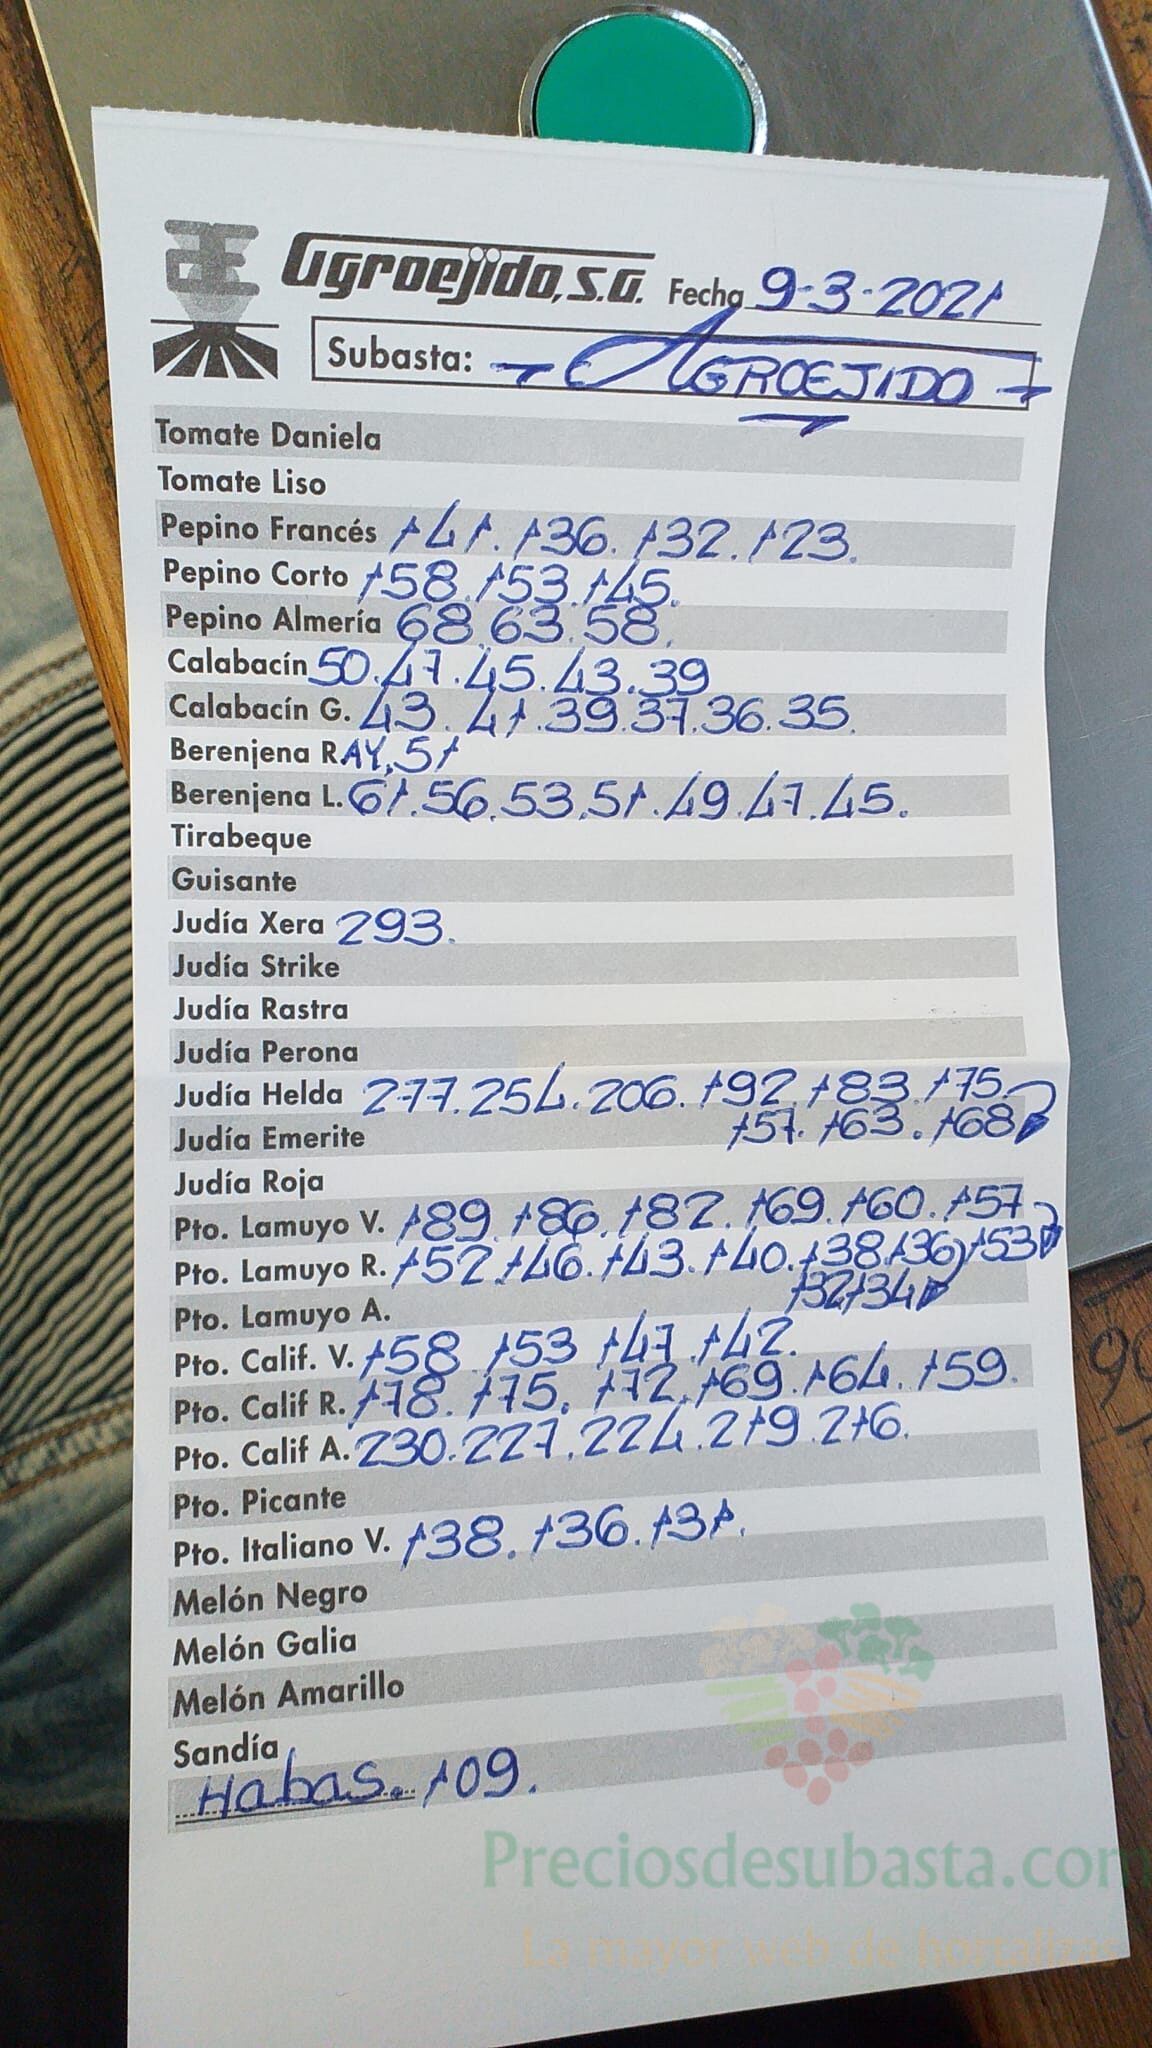 Agroejido, S.A. Fecha 9-3-2021
Subasta: - AGROEJIDO -
Tomate Daniela
Tomate Liso
Pepino Francés 141. 136. 132. 123.
Pepino Corto 158. 153. 145.
Pepino Almería 68. 63. 58.
Calabacín 50. 47. 45. 43. 39
Calabacín G. 43. 41. 39. 37. 36. 35.
Berenjena RAY. 51
Berenjena L. 61. 56. 53. 51. 49. 47. 45.
Tirabeque
Guisante
Judía Xera 293.
Judía Strike
Judía Rastra
Judía Perona
Judía Helda 277. 254. 206. 192. 183. 175.
Judía Emerite 157. 163. 168
Judía Roja
Pto. Lamuyo V. 189. 186. 182. 169. 160. 157
Pto. Lamuyo R. 152. 146. 143. 140. 138. 136 153
Pto. Lamuyo A. 132 134
Pto. Calif. V. 158 153 147 142.
Pto. Calif R. 178. 175. 172. 169. 164. 159.
Pto. Calif A. 230. 227. 224. 219. 216.
Pto. Picante
Pto. Italiano V. 138. 136. 131.
Melón Negro
Melón Galia
Melón Amarillo
Sandía
Habas. 109.
Preciosdesubasta.com
La mayor web de hortalizas